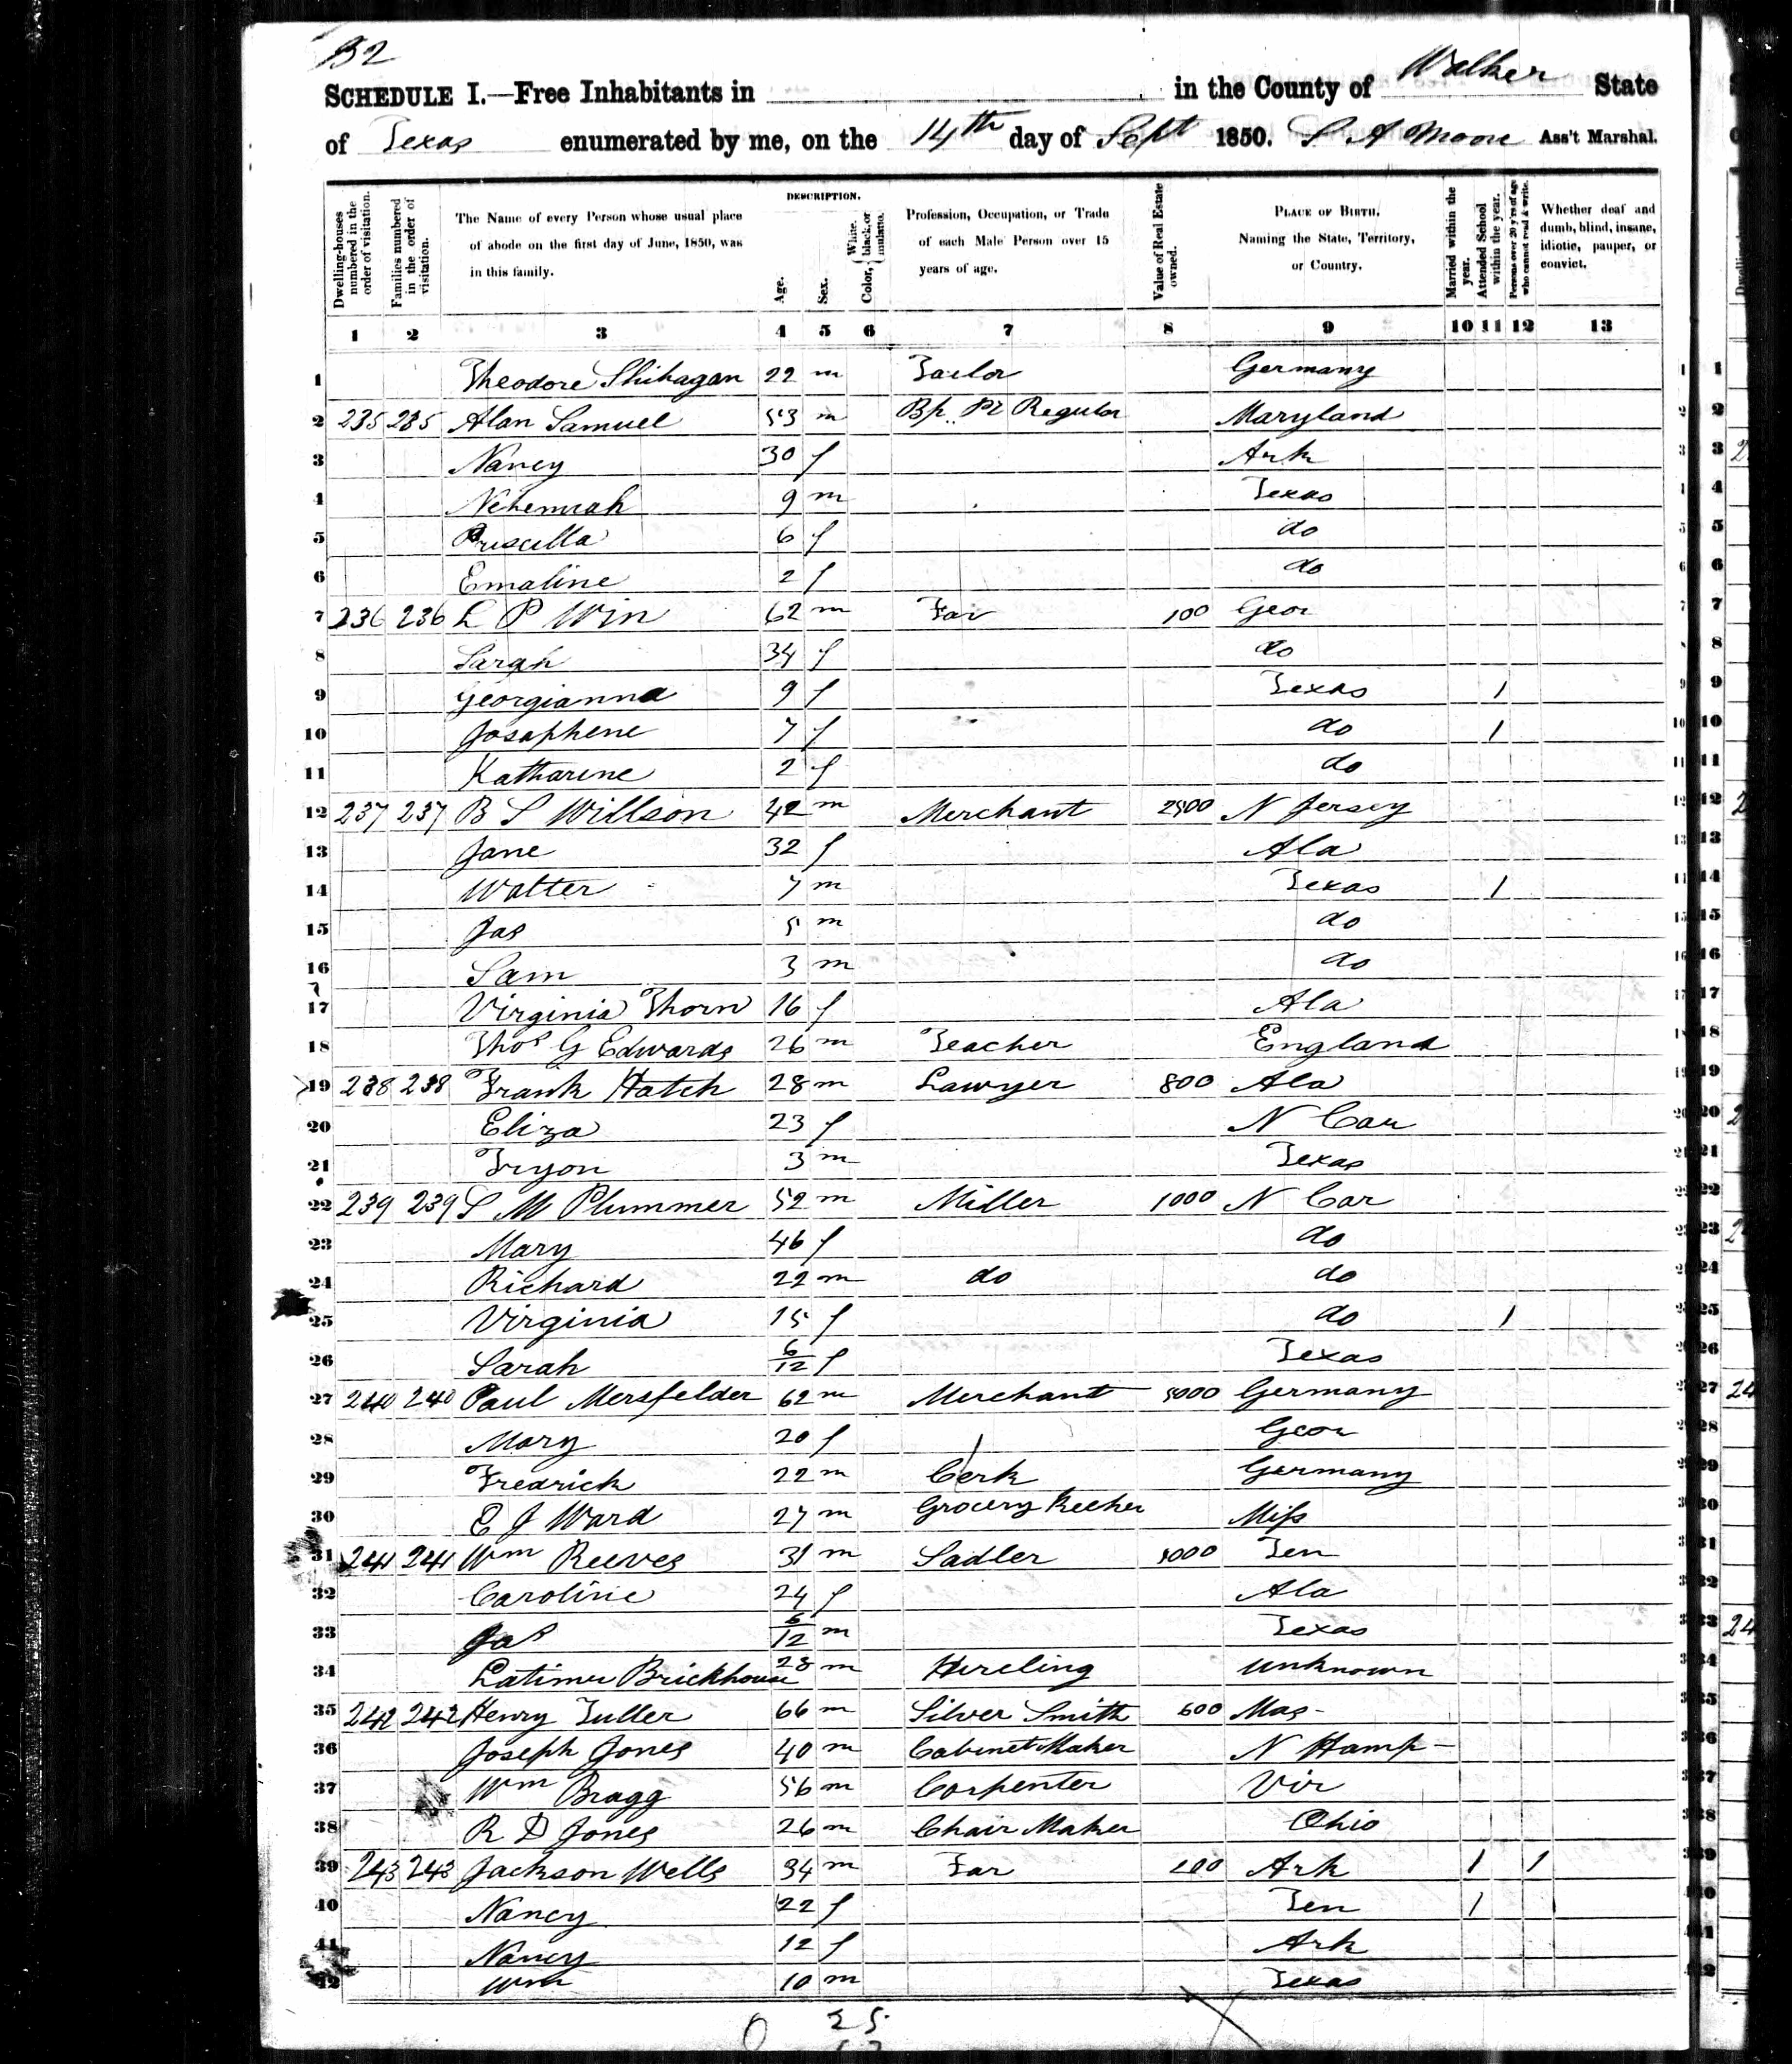 32
SCHEDULE I.—Free Inhabitants in in the County of Walker State
of Texas enumerated by me, on the 14th day of Sept 1850. S A Moore Ass't Marshal.
Dwelling-houses numbered in the order of visitation.
Families numbered in the order of visitation.
The Name of every Person whose usual place of abode on the first day of June, 1850, was in this family.
DESCRIPTION.
Age.
Sex.
Color, { White, black, or mulatto.
Profession, Occupation, or Trade of each Male Person over 15 years of age.
Value of Real Estate owned.
PLACE OF BIRTH, Naming the State, Territory, or Country.
Married within the year.
Attended School within the year.
Persons over 20 y'rs of age who cannot read & write.
Whether deaf and dumb, blind, insane, idiotic, pauper, or convict.
1 2 3 4 5 6 7 8 9 10 11 12 13
1 Theodore Shihagan 22 m Tailor Germany
2 235 235 Alan Samuel 53 m Maryland
3 Nancy 30 f Ark
4 Nehemiah 9 m Texas
5 Priscilla 6 f do
6 Emaline 2 f do
7 236 236 L P Win 62 m Far 100 Geor
8 Sarah 34 f do
9 Georgianna 9 f Texas 1
10 Josaphene 7 f do 1
11 Katharine 2 f do
12 237 237 B S Willson 42 m Merchant 2500 N Jersey
13 Jane 32 f Ala
14 Walter 7 m Texas 1
15 Jas 5 m do
16 Sam 3 m do
17 Virginia Thorn 16 f Ala
18 Thos G Edwards 26 m Teacher England
19 238 238 Frank Hatch 28 m Lawyer 800 Ala
20 Eliza 23 f N Car
21 Tryon 3 m Texas
22 239 239 S M Plummer 52 m Miller 1000 N Car
23 Mary 46 f do
24 Richard 22 m do do
25 Virginia 15 f do 1
26 Sarah 6/12 f Texas
27 240 240 Paul Mersfelder 62 m Merchant 5000 Germany
28 Mary 20 f Geor
29 Fredrick 22 m Cerk Germany
30 E J Ward 27 m Grocery Keeker Miss
31 241 241 Wm Reeves 31 m Sadler 1000 Ten
32 Caroline 24 f Ala
33 Jas 6/12 m Texas
34 Latimer Brickhouse 28 m Hireling unknown
35 242 242 Henry Tuller 66 m Silver Smith 600 Mas-
36 Joseph Jones 40 m Cabinet Maker N Hamp-
37 Wm Bragg 56 m Carpenter Vir
38 R D Jones 26 m Chair Maker Ohio
39 243 243 Jackson Wells 34 m Far 200 Ark 1 1
40 Nancy 22 f Ten 1
41 Nancy 12 f Ark
42 Wm 10 m Texas
0 25